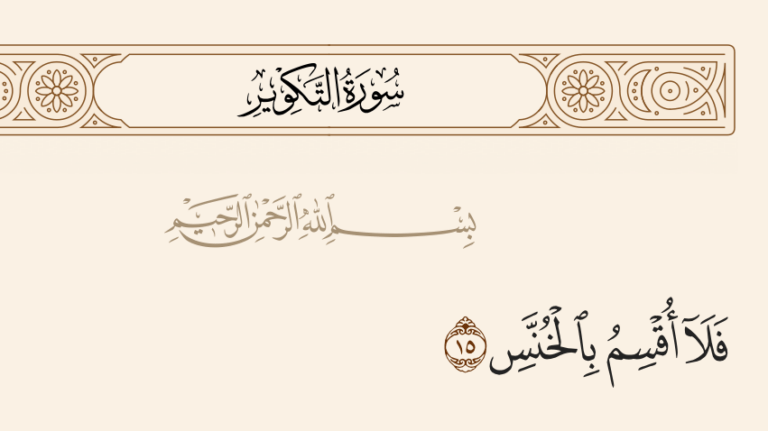 سُورَةُ التَّكْوِيرِ
بِسْمِ ٱللَّهِ ٱلرَّحْمَٰنِ ٱلرَّحِيمِ
فَلَآ أُقْسِمُ بِٱلْخُنَّسِ ١٥